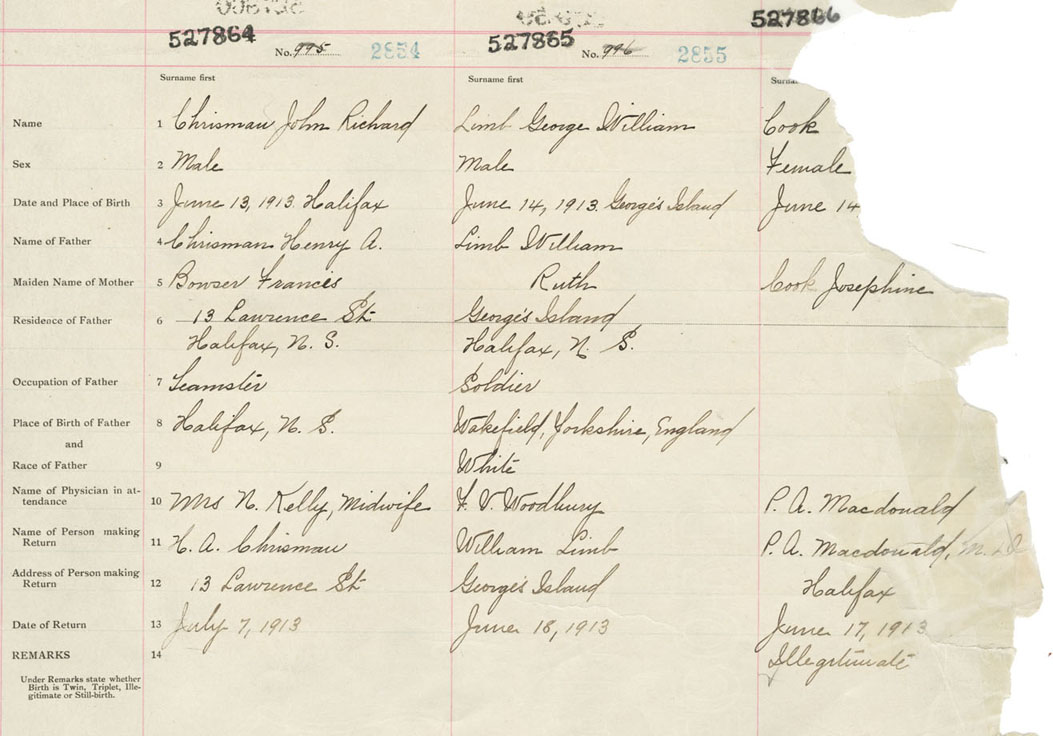 527864 527865 527866
No. 995 2854 No. 996 2855
Surname first Surname first
Name 1 Chrisman John Richard Limb George William Cook
Sex 2 Male Male Female
Date and Place of Birth 3 June 13, 1913. Halifax June 14, 1913. George's Island June 14
Name of Father 4 Chrisman Henry A. Limb William
Maiden Name of Mother 5 Bowser Francis Ruth Cook Josephine
Residence of Father 6 13 Lawrence St. George's Island
Halifax, N. S. Halifax, N. S.
Occupation of Father 7 Teamster Soldier
Place of Birth of Father 8 Halifax, N. S. Wakefield, Yorkshire, England
and
Race of Father 9 White
Name of Physician in at-
tendance 10 Mrs N. Kelly, Midwife F. V. Woodbury P. A. Macdonald
Name of Person making
Return 11 H. A. Chrisman William Limb P. A. Macdonald, M. D.
Address of Person making
Return 12 13 Lawrence St. George's Island Halifax
Date of Return 13 July 7, 1913 June 18, 1913 June 17, 1913
REMARKS 14 Illegitimate
Under Remarks state whether
Birth is Twin, Triplet, Ille-
gitimate or Still-birth.